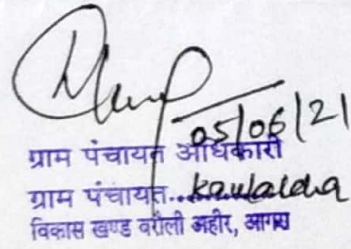 05/06/21
ग्राम पंचायत अधिकारी
ग्राम पंचायत..
विकास खण्ड बरौली अहीर, आगरा